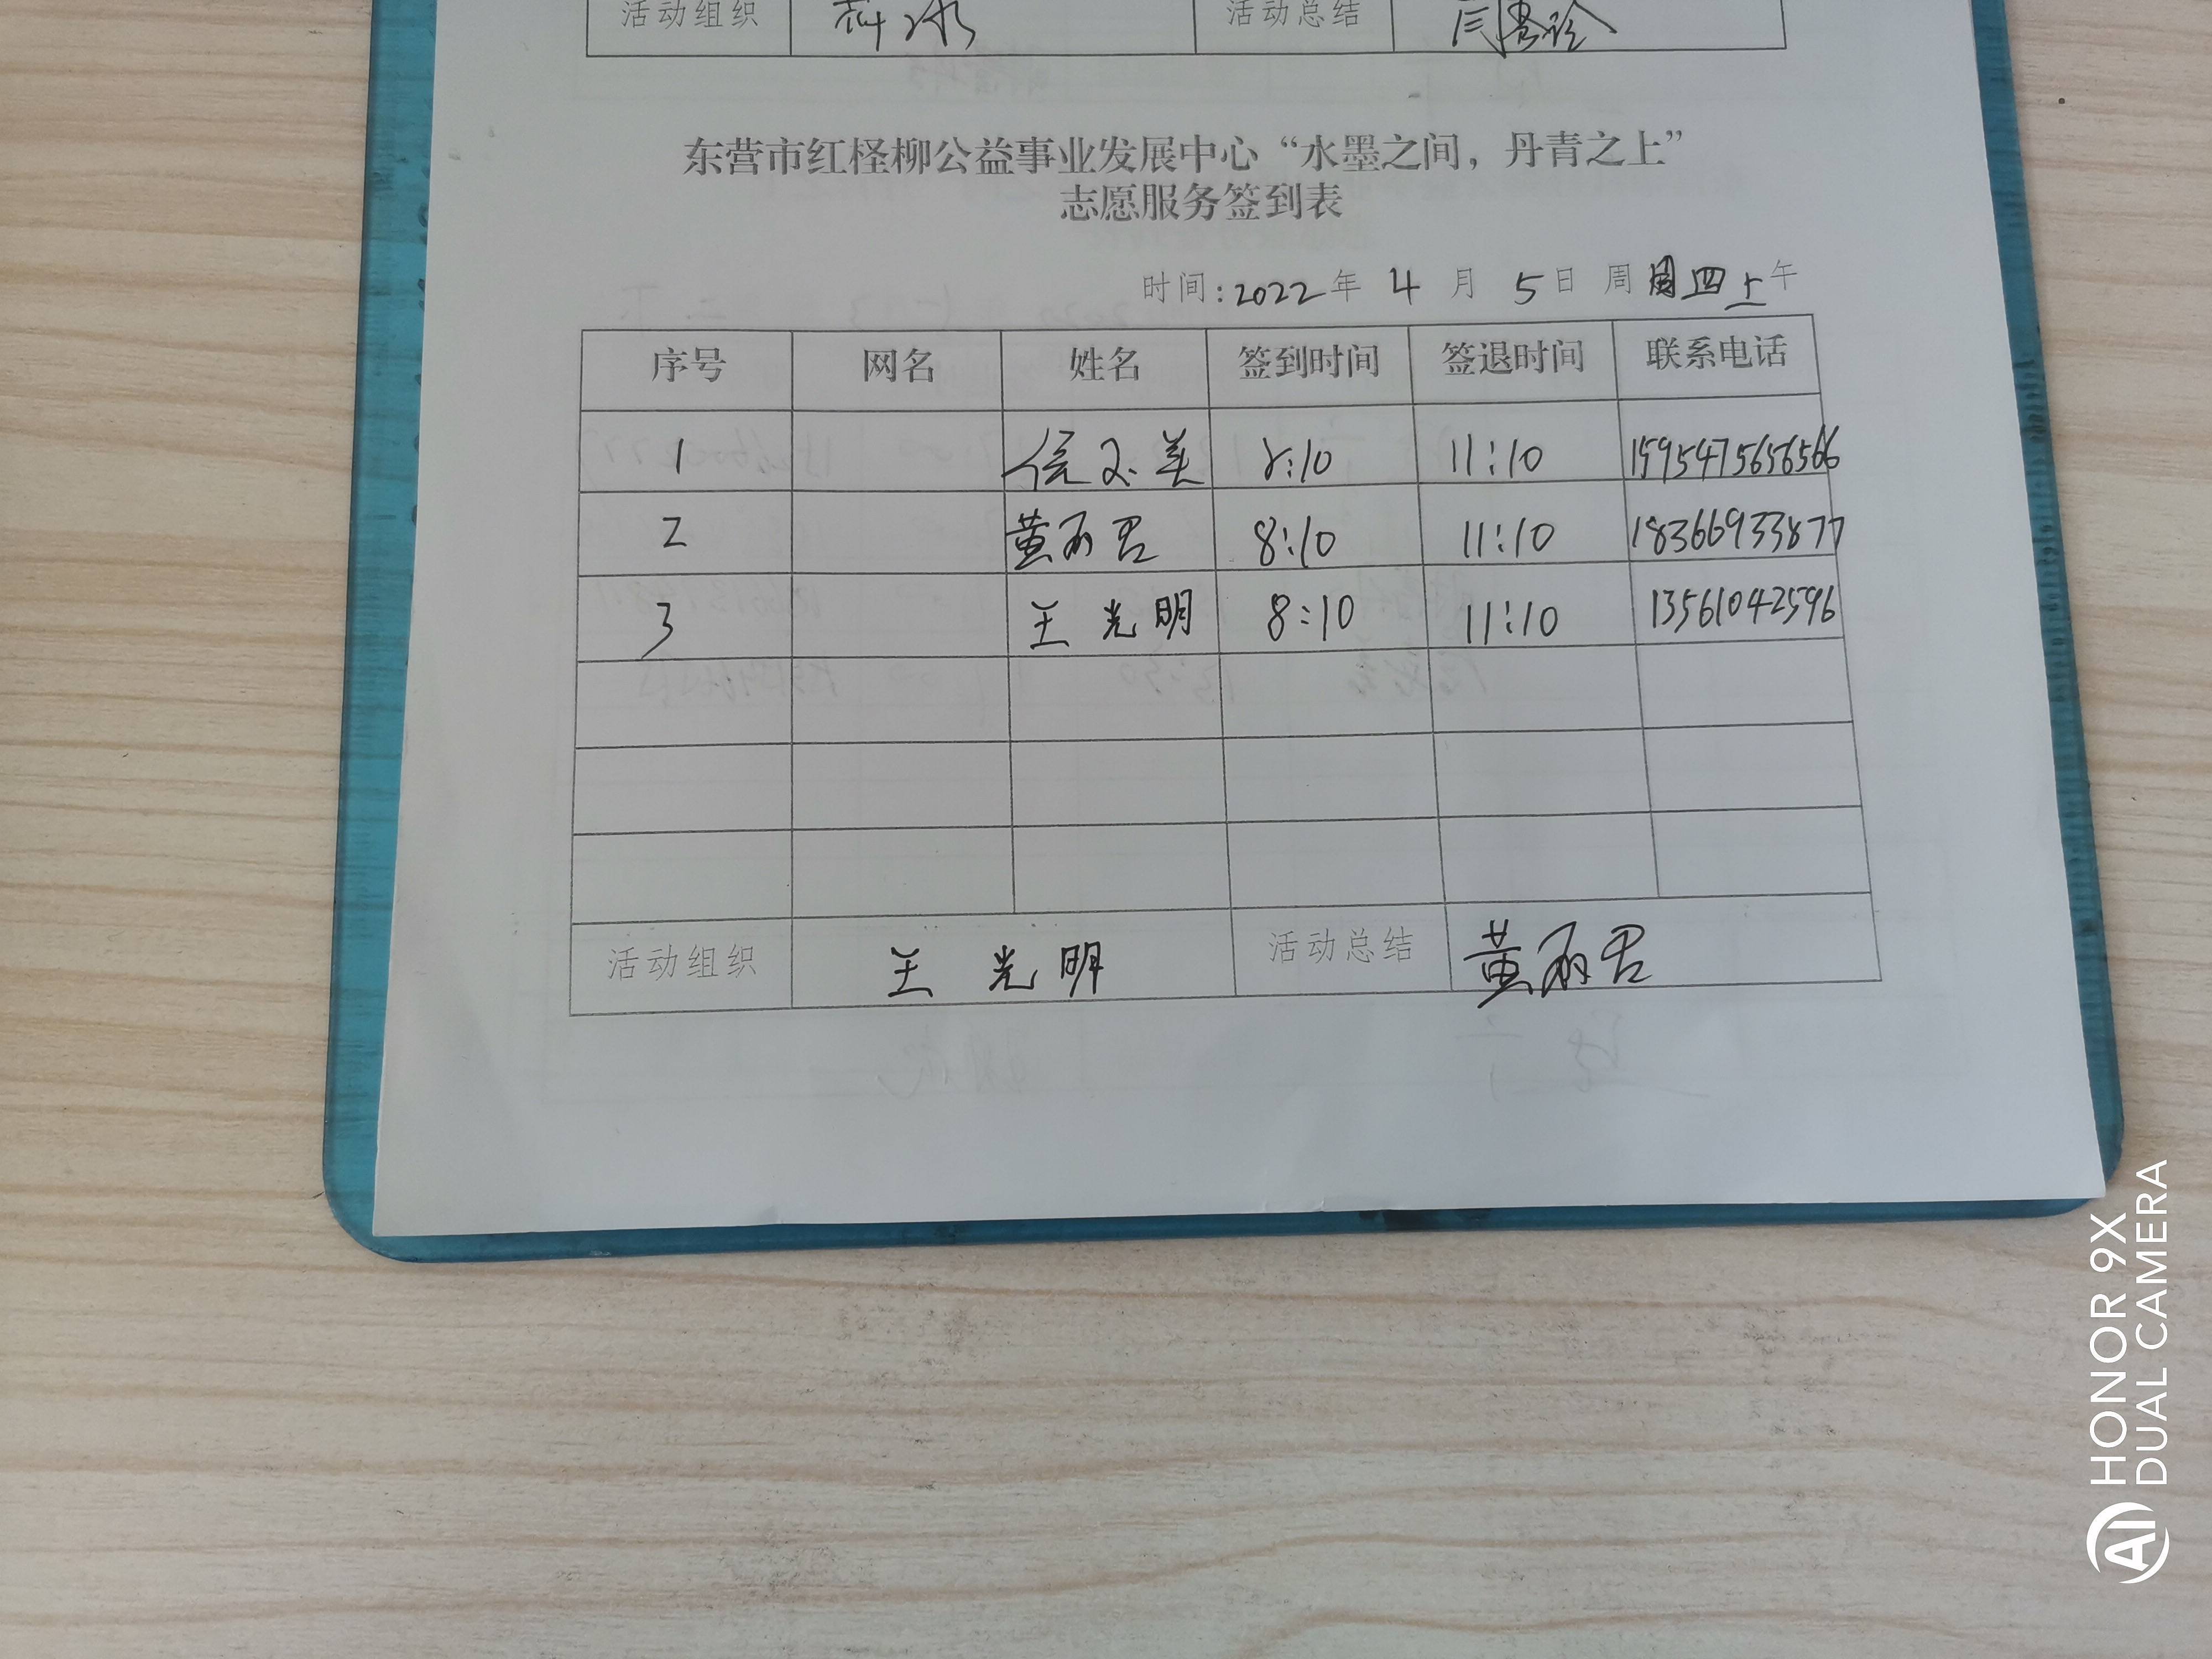 活动组织 活动总结
东营市红柽柳公益事业发展中心“水墨之间，丹青之上”
志愿服务签到表
时间:2022年 4 月 5日 周 周四上午
序号 网名 姓名 签到时间 签退时间 联系电话
1 8:10 11:10
2 黄丽君 8:10 11:10 18366933877
3 王光明 8:10 11:10 13561042596
活动组织 王光明 活动总结 黄丽君
HONOR 9X
AI DUAL CAMERA